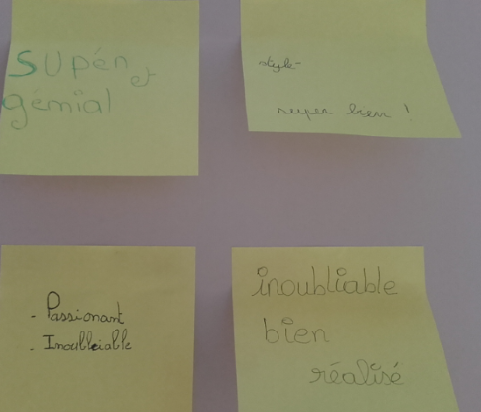 Supér et
gémial
stylé
super bien !
- Passionant
- Inoubliable
inoubliable
bien
réalisé